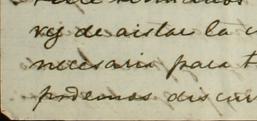 vez de aislar la
necesaria para
podemos discur